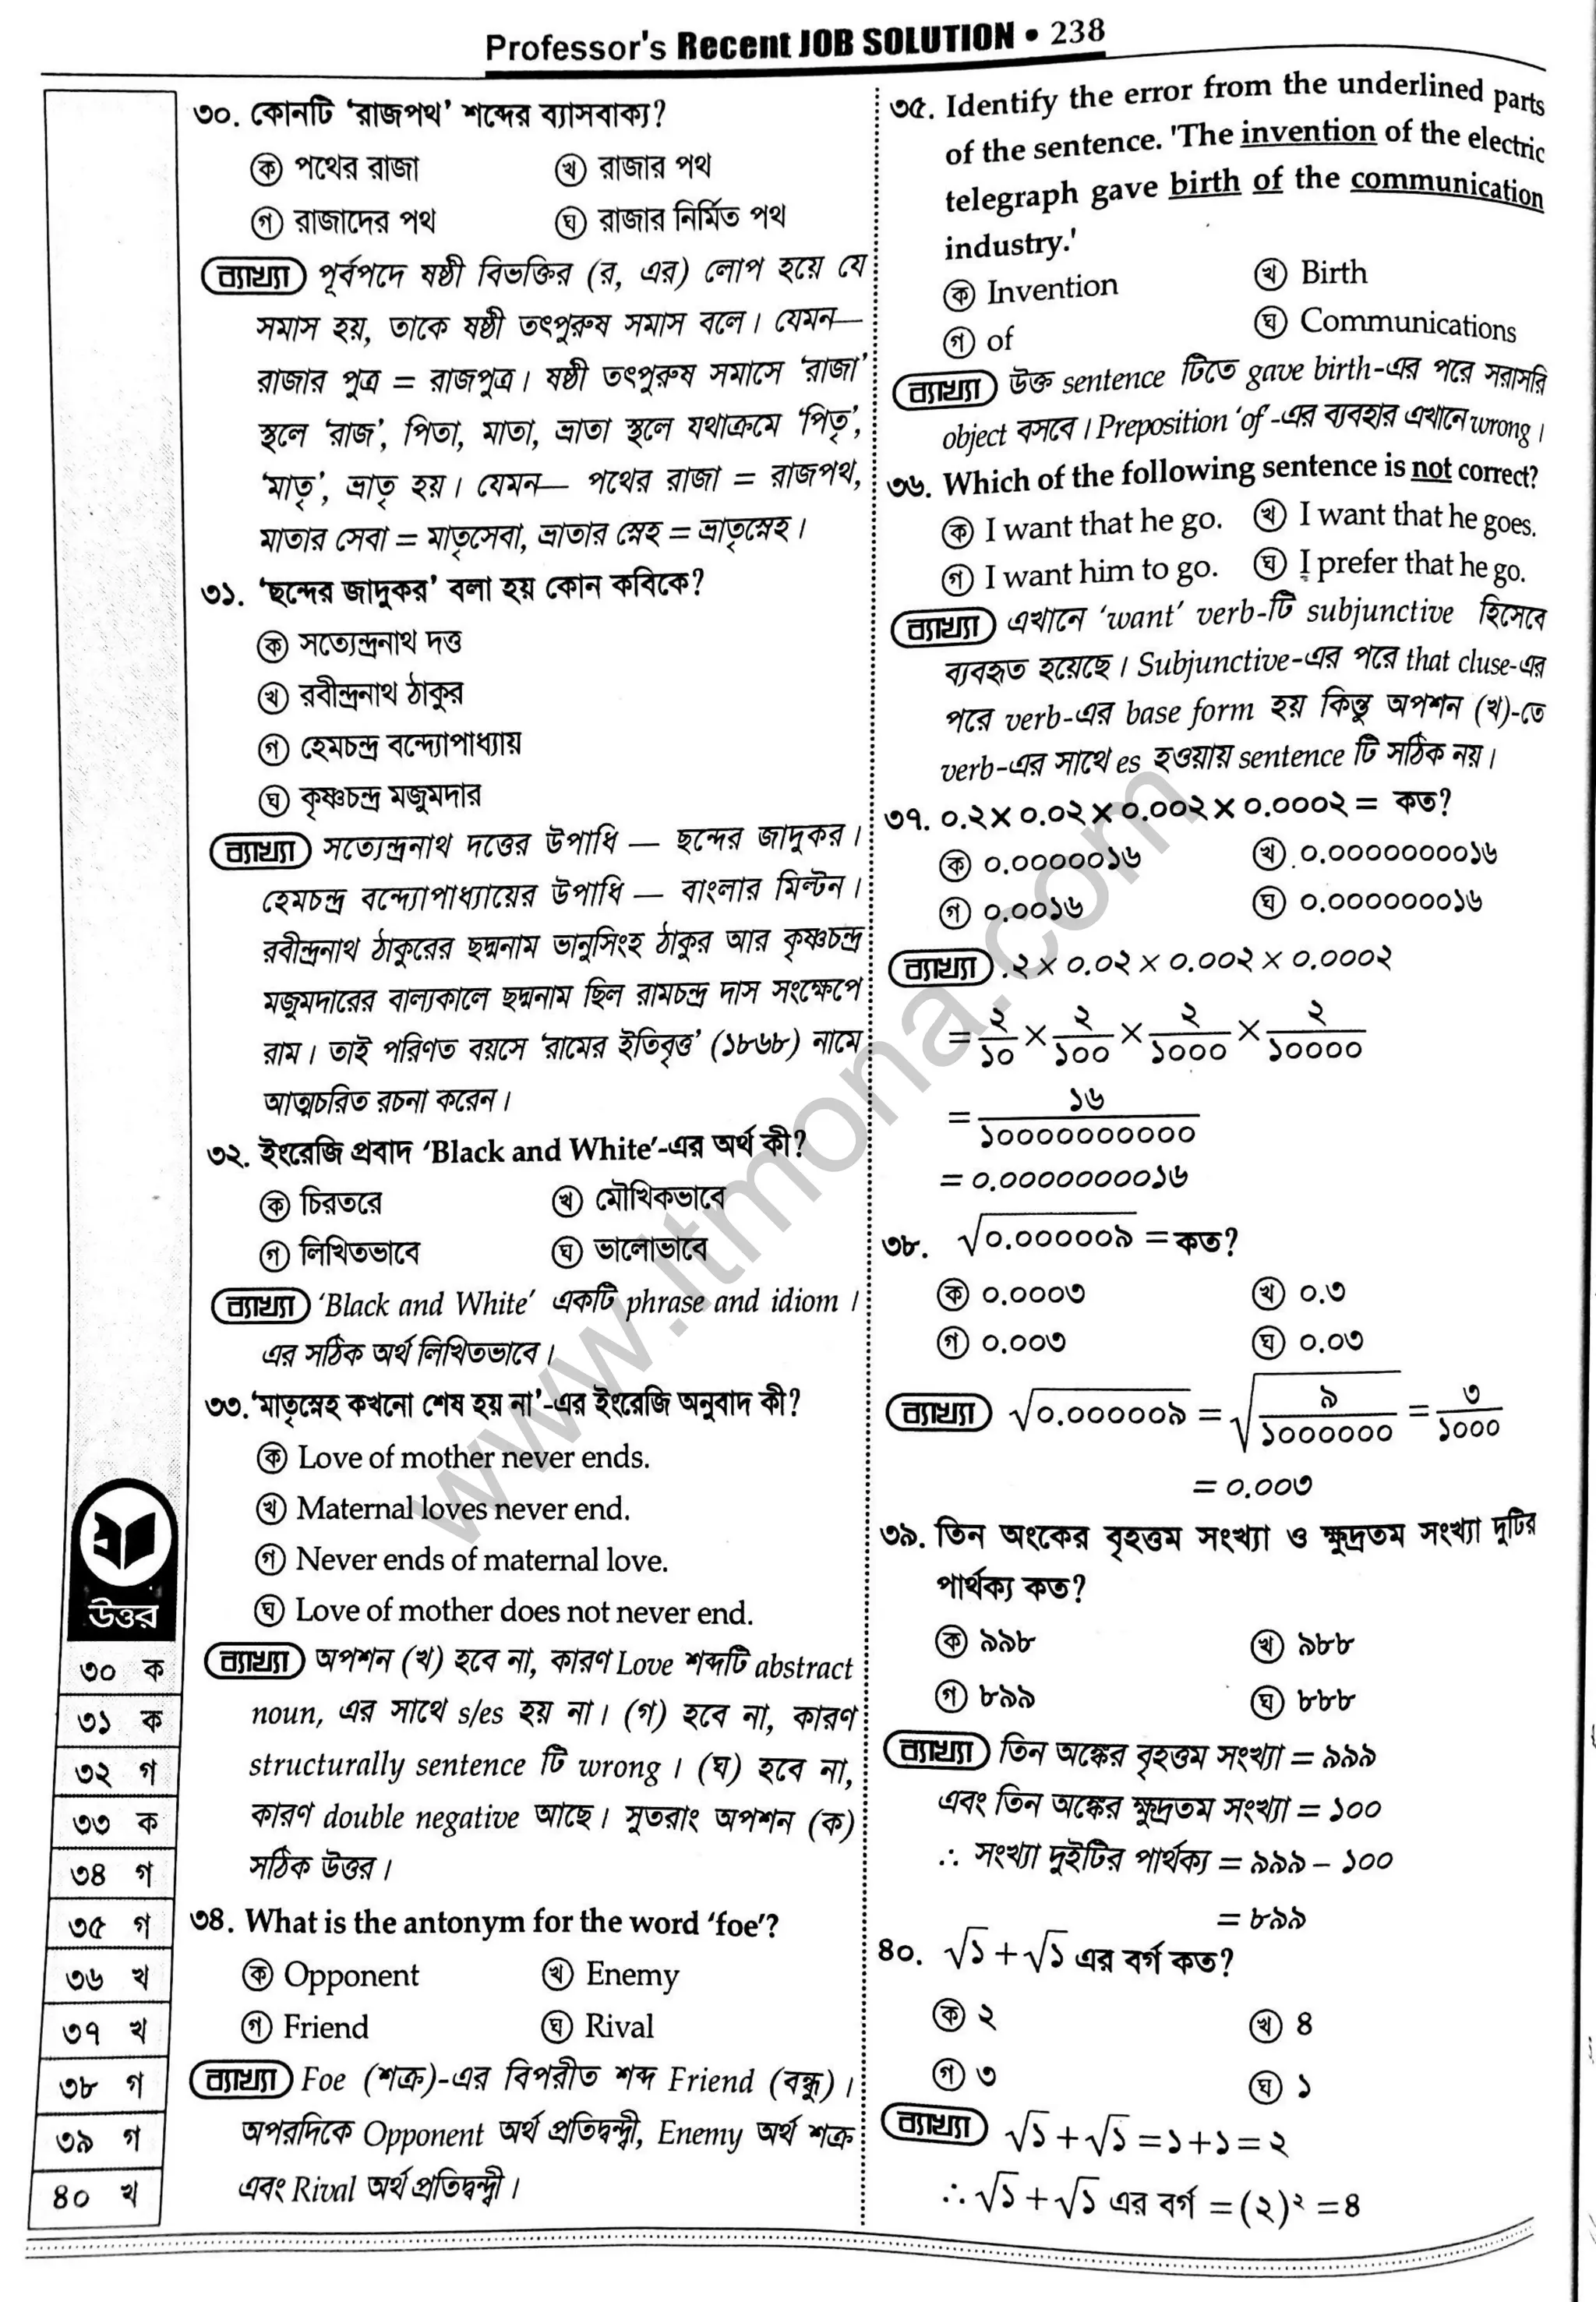 Professor's Recent JOB SOLUTION • 238
৩০. কোনটি ‘রাজপথ’ শব্দের ব্যাসবাক্য?
ক পথের রাজা খ রাজার পথ
গ রাজাদের পথ ঘ রাজার নির্মিত পথ
ব্যাখ্যা পূর্বপদে ষষ্ঠী বিভক্তির (র, এর) লোপ হয়ে যে
সমাস হয়, তাকে ষষ্ঠী তৎপুরুষ সমাস বলে। যেমন—
রাজার পুত্র = রাজপুত্র। ষষ্ঠী তৎপুরুষ সমাসে ‘রাজা’
স্থলে ‘রাজ’, পিতা, মাতা, ভ্রাতা স্থলে যথাক্রমে ‘পিতৃ’,
‘মাতৃ’, ভ্রাতৃ হয়। যেমন— পথের রাজা = রাজপথ,
মাতার সেবা = মাতৃসেবা, ভ্রাতার স্নেহ = ভ্রাতৃস্নেহ।
৩১. ‘ছন্দের জাদুকর’ বলা হয় কোন কবিকে?
ক সত্যেন্দ্রনাথ দত্ত
খ রবীন্দ্রনাথ ঠাকুর
গ হেমচন্দ্র বন্দ্যোপাধ্যায়
ঘ কৃষ্ণচন্দ্র মজুমদার
ব্যাখ্যা সত্যেন্দ্রনাথ দত্তের উপাধি — ছন্দের জাদুকর।
হেমচন্দ্র বন্দ্যোপাধ্যায়ের উপাধি — বাংলার মিল্টন।
রবীন্দ্রনাথ ঠাকুরের ছদ্মনাম ভানুসিংহ ঠাকুর আর কৃষ্ণচন্দ্র
মজুমদারের বাল্যকালে ছদ্মনাম ছিল রামচন্দ্র দাস সংক্ষেপে
রাম। তাই পরিণত বয়সে ‘রামের ইতিবৃত্ত’ (১৮৬৮) নামে
আত্মচরিত রচনা করেন।
৩২. ইংরেজি প্রবাদ ‘Black and White’-এর অর্থ কী?
ক চিরতরে খ মৌখিকভাবে
গ লিখিতভাবে ঘ ভালোভাবে
ব্যাখ্যা ‘Black and White’ একটি phrase and idiom ।
এর সঠিক অর্থ লিখিতভাবে।
৩৩. ‘মাতৃস্নেহ কখনো শেষ হয় না’-এর ইংরেজি অনুবাদ কী?
ক Love of mother never ends.
খ Maternal loves never end.
গ Never ends of maternal love.
ঘ Love of mother does not never end.
ব্যাখ্যা অপশন (খ) হবে না, কারণ Love শব্দটি abstract
noun, এর সাথে s/es হয় না। (গ) হবে না, কারণ
structurally sentence টি wrong । (ঘ) হবে না,
কারণ double negative আছে। সুতরাং অপশন (ক)
সঠিক উত্তর।
৩৪. What is the antonym for the word ‘foe’?
ক Opponent খ Enemy
গ Friend ঘ Rival
ব্যাখ্যা Foe (শত্রু)-এর বিপরীত শব্দ Friend (বন্ধু)।
অপরদিকে Opponent অর্থ প্রতিদ্বন্দ্বী, Enemy অর্থ শত্রু
এবং Rival অর্থ প্রতিদ্বন্দ্বী।
৩৫. Identify the error from the underlined parts
of the sentence. 'The invention of the electric
telegraph gave birth of the communication
industry.'
ক Invention খ Birth
গ of ঘ Communications
ব্যাখ্যা উক্ত sentence টিতে gave birth-এর পরে সরাসরি
object বসবে। Preposition ‘of’-এর ব্যবহার এখানে wrong।
৩৬. Which of the following sentence is not correct?
ক I want that he go. খ I want that he goes.
গ I want him to go. ঘ I prefer that he go.
ব্যাখ্যা এখানে ‘want’ verb-টি subjunctive হিসেবে
ব্যবহৃত হয়েছে। Subjunctive-এর পরে that cluse-এর
পরে verb-এর base form হয় কিন্তু অপশন (খ)-তে
verb-এর সাথে es হওয়ায় sentence টি সঠিক নয়।
৩৭. ০.২ × ০.০২ × ০.০০২ × ০.০০০২ = কত?
ক ০.০০০০০১৬ খ ০.০০০০০০০০১৬
গ ০.০০১৬ ঘ ০.০০০০০০০১৬
ব্যাখ্যা .২ × ০.০২ × ০.০০২ × ০.০০০২
= ২/১০ × ২/১০০ × ২/১০০০ × ২/১০০০০
= ১৬/১০০০০০০০০০০
= ০.০০০০০০০০১৬
৩৮. √০.০০০০০৯ = কত?
ক ০.০০০৩ খ ০.৩
গ ০.০০৩ ঘ ০.০৩
ব্যাখ্যা √০.০০০০০৯ = √৯/১০০০০০০ = ৩/১০০০
= ০.০০৩
৩৯. তিন অংকের বৃহত্তম সংখ্যা ও ক্ষুদ্রতম সংখ্যা দুটির
পার্থক্য কত?
ক ৯৯৮ খ ৯৮৮
গ ৮৯৯ ঘ ৮৮৮
ব্যাখ্যা তিন অঙ্কের বৃহত্তম সংখ্যা = ৯৯৯
এবং তিন অঙ্কের ক্ষুদ্রতম সংখ্যা = ১০০
∴ সংখ্যা দুইটির পার্থক্য = ৯৯৯ – ১০০
= ৮৯৯
৪০. √১ + √১ এর বর্গ কত?
ক ২ খ ৪
গ ৩ ঘ ১
ব্যাখ্যা √১ + √১ = ১ + ১ = ২
∴ √১ + √১ এর বর্গ = (২)² = ৪
উত্তর
৩০ ক
৩১ ক
৩২ গ
৩৩ ক
৩৪ গ
৩৫ গ
৩৬ খ
৩৭ খ
৩৮ গ
৩৯ গ
৪০ খ
www.itmona.com